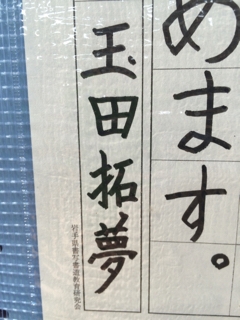 めます。
玉田拓夢
岩手県書写書道教育研究会